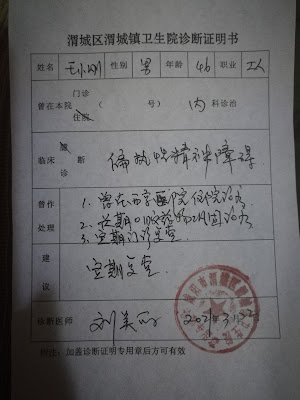 渭城区渭城镇卫生院诊断证明书
姓名 王小刚 性别 男 年龄 46 职业 工人
曾在本院 门诊 住院 ( 号) 内 科诊治
临床诊断 偏执性精神障碍
曾作处理
1、曾在西京医院住院治疗
2、长期口服药物巩固治疗
3、定期门诊复查
建议
定期复查
诊断医师 刘美 2021.3.22
附注:加盖诊断证明专用章后方可有效